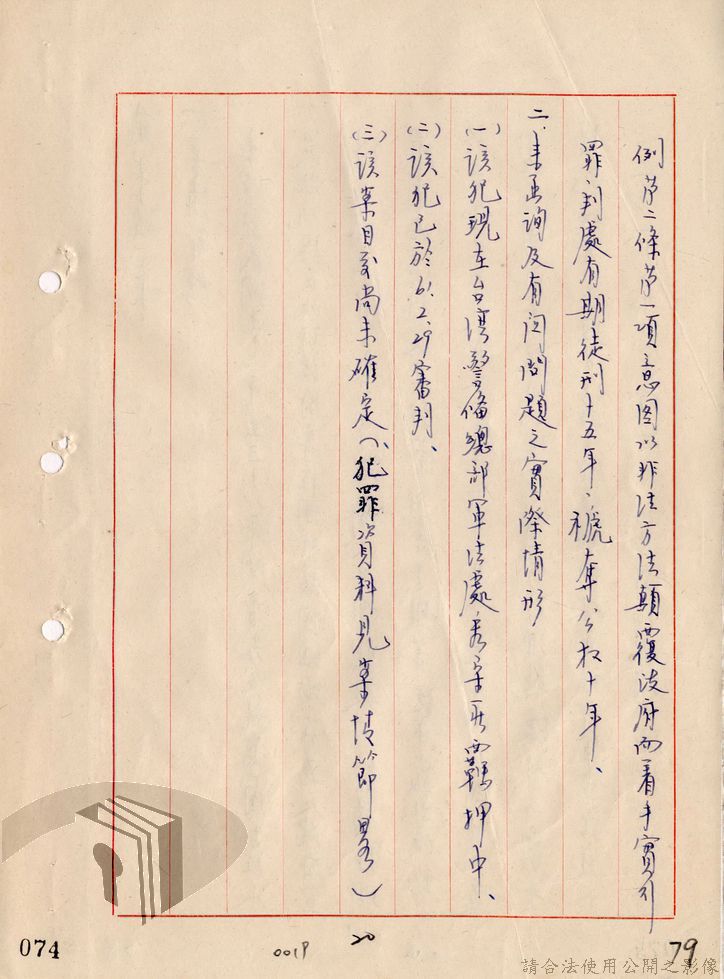 例第二條第一項意图以非法方法顛覆政府而着手實行
罪、判處有期徒刑十五年、褫奪公权十年、
二、来函詢及有関問題之實際情形
(一)該犯現在台湾警俻總部軍法處看守所覊押中、
(二)該犯已於61.2.29審判、
(三)該案目前尚未確定(犯罪資料見案情節畧)
074
20
79
請合法使用公開之影像